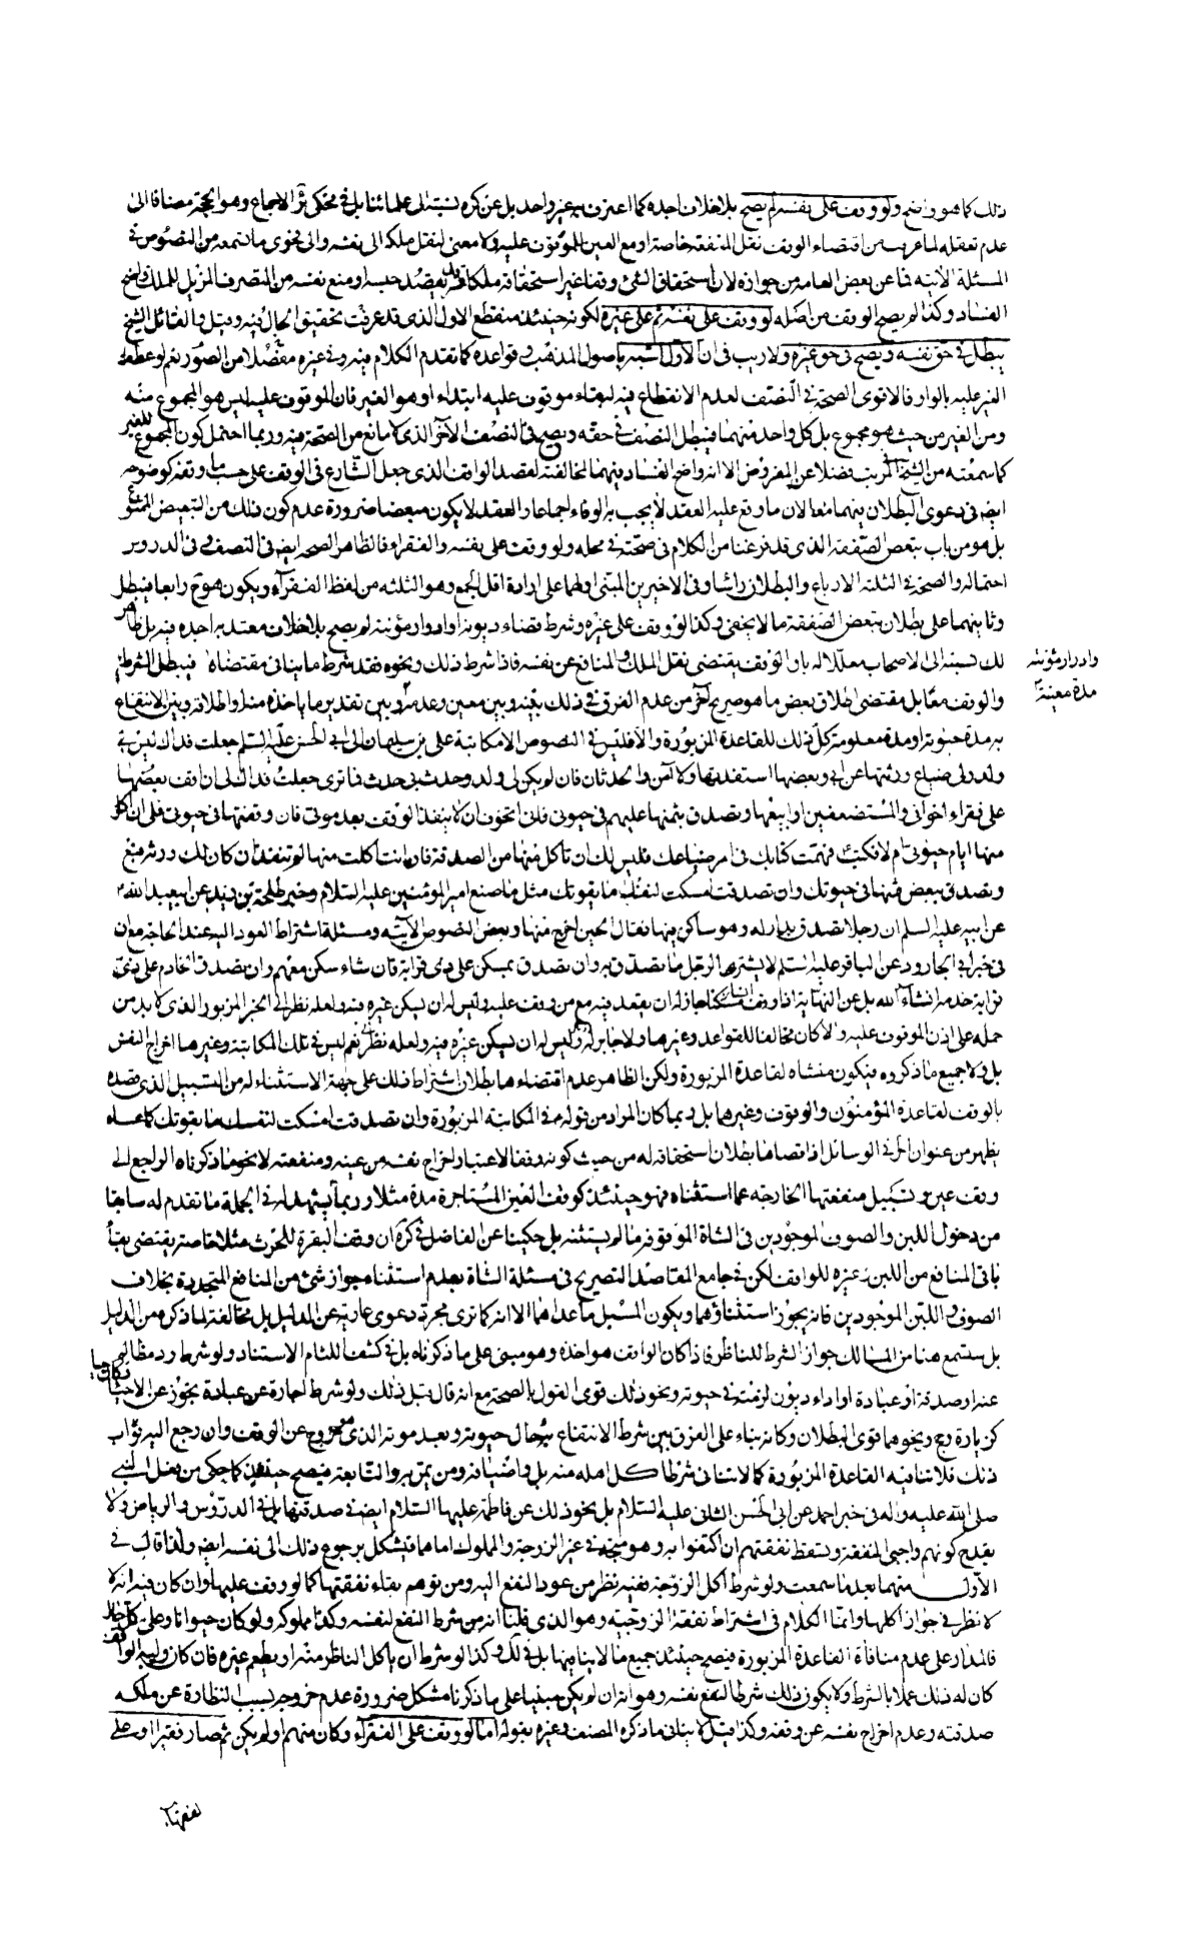 ذلك كما هو واضح ولو وقف على نفسه لم يصح بلا خلاف اجده كما اعترف به غير واحد بل عن كره نسبته الى علمائنا بل في محكى ئر الاجماع وهو الحجة مضافا الى
عدم تعقله لما عرفت من اقتضاء الوقف نقل المنفعة خاصة او مع العين للموقوف عليه ولا معنى لنقل ملكه الى نفسه والى فحوى ما تسمعه من النصوص في
المسئلة الآتية فما عن بعض العامة من جوازه لان استحقاق الشئ وقفا غير استحقاقه ملكا وقد يقصد حبسه ومنع نفسه من التصرف المزيل للملك واضح
الفساد وكذا لم يصح الوقف من اصله لو وقف على نفسه ثم على غيره لكونه حينئذ منقطع الاول الذي قد عرفت تحقيق الحال فيه وقيل والقائل الشيخ
يبطل في حق نفسه ويصح في حق غيره ولا ريب في ان الاول اشبه باصول المذهب وقواعده كما تقدم الكلام فيه وفي غيره مفصلا من الصور نعم لو عطف
الغير عليه بالواو فالاقوى الصحة في النصف لعدم الانقطاع فيه لبقاء موقوف عليه ابتداء وهو الغير فان الموقوف عليه ليس هو المجموع منه
ومن الغير من حيث هو مجموع بل كل واحد منهما فيبطل النصف في حقه ويصح في النصف الآخر الذي لا مانع من الصحة فيه وربما احتمل كون المجموع للغير
كما سمعته من الشيخ في المرتب فضلا عن المفروض الا انه واضح الفساد فيهما لمخالفته لقصد الواقف الذي جعل الشارع في الوقف على حسب ما وقفه كوضوحه
ايض في دعوى البطلان فيهما معا لان ما وقع عليه العقد لا يجب به الوفاء اجماعا والعقد لا يكون مبعضا ضرورة عدم كون ذلك من التبعيض الممنوع
بل هو من باب تبعض الصفقة الذي قد فرغنا من الكلام في صحته في محله ولو وقف على نفسه والفقراء فالظاهر الصحة ايض في النصف وفي الدروس
احتماله والصحة في الثلثة الارباع والبطلان راسا وفي الاخيرين المبنى اولهما على ارادة اقل الجمع وهو الثلثة من لفظ الفقراء ويكون هو ح رابعا فيبطل
وثانيهما على بطلان تبعض الصفقة ما لا يخفى وكذا لو وقف على غيره وشرط قضاء ديونه او ادرار مؤنته لم يصح بلا خلاف معتد به اجده فيه بل ظاهر
وادرار مؤنته
مدة معينة
لك نسبته الى الاصحاب معللا له بان الوقف يقتضى نقل الملك والمنافع عن نفسه فاذا شرط ذلك ونحوه فقد شرط ما ينافى مقتضاه فيبطل الشرط
والوقف معا بل مقتضى اطلاق بعض ما هو صريح آخر من عدم الفرق في ذلك بينه وبين معين وعدمه وبين تقدير ما ياخذه منه او اطلاقه وبين الانتفاع
به مدة حيوته او مدة معلومة كل ذلك للقاعدة المزبورة والا فليس في النصوص الا مكاتبة على بن سليمان الى ابى الحسن عليه السلم جعلت فداك ليس لي
ولد ولى ضياع ورثتها عن ابى وبعضها استفدتها ولا آمن الحدثان فان لم يكن لى ولد وحدث بى حدث فما ترى جعلت فداك لى ان اقف بعضها
على فقراء اخوانى والمستضعفين او ابيعها واتصدق بثمنها عليهم في حيوتى فانى اتخوف ان لا ينفذ الوقف بعد موتى فان وقفتها في حيوتى فلى ان آكل
منها ايام حيوتى ام لا فكتب ع فهمت كتابك في امر ضياعك فليس لك ان تاكل منها من الصدقة فان انت اكلت منها لم تنفذ ان كان لك ورثة فبع
وتصدق ببعض ثمنها في حيوتك وان تصدقت امسكت لنفسك ما يقوتك مثل ما صنع امير المؤمنين عليه السلام وخبر طلحة بن زيد عن ابى عبد الله ع
عن ابيه عليه السلم ان رجلا تصدق بدار له وهو ساكن فيها فقال الحين اخرج منها وبعض النصوص الآتية ومسئلة اشتراط العود اليه عند الحاجة مع ان
في خبر ابى الجارود عن الباقر عليه السلم لا يشترى الرجل ما تصدق به وان تصدق بمسكن على ذى قرابة فان شاء سكن معهم وان تصدق الخادم على ذى
قرابة خدمه انشاء الله بل عن النهاية اذا وقف انسان مسكنا جاز له ان يقعد فيه مع من وقف عليه وليس له ان يسكن غيره فيه ولعله نظر الى الخبر المزبور الذي لا بد من
حمله على اذن الموقوف عليه والا كان مخالفا للقواعد وغيرها ولا جابر له وليس له ان يسكن غيره فيه ولعله نظر نعم ليس في تلك المكاتبة وغيرها اخراج النفس
بل ولا جميع ما ذكروه فيكون منشاه القاعدة المزبورة ولكن الظاهر عدم اقتضاءها بطلان اشتراط ذلك على جهة الاستثناء له من التسبيل الذي قصده
بالوقف لقاعدة المؤمنون والوقوف وغيرها بل ربما كان المراد من قوله ع في المكاتبة المزبورة وان تصدقت امسكت لنفسك ما يقوتك كما عساه
يظهر من عنوان الحر في الوسائل اذ اقصاها بطلان استحقاقه له من حيث كونه وقفا لاعتبار اخراج نفسه من عينه ومنفعته لا نحو ما ذكرناه الراجع الى
وقف عين وتسبيل منفعتها الخارجة عما استثناه فهو حينئذ كوقف العين المستاجرة مدة مثلا وربما يشهد له في الجملة ما تقدم له سابقا
من دخول اللبن والصوف الموجودين في الشاة الموقوفة ما لم يستثنه بل حكينا عن الفاضل في كره ان وقف البقرة للحرث مثلا خاصة يقتضى بقاء
باقى المنافع من اللبن وغيره للواقف لكن في جامع المقاصد التصريح في مسئلة الشاة بعدم استثناء جواز شئ من المنافع المتجددة بخلاف
الصوف واللبن الموجودين فانه يجوز استثناؤهما ويكون المسبل ما عداهما الا انه كما ترى مجرد دعوى عارية عن الدليل بل مخالفة لما ذكره من الدليل
بل ستسمع هنا من المسالك جواز الشرط للناظر فاذا كان الواقف هو اخذه وهو مبنى على ما ذكرناه بل في كشف اللثام الاستناد ولو شرط رد مظالم
عنه او صدقة او عبادة او اداء ديون لزمته في حيوته ونحو ذلك قوى القول بالصحة مع انه قال قبل ذلك ولو شرط اجارة عن عبادة يجوز عن الاحياء
كزيارة وحج ونحوهما قوى البطلان وكانه بناء على الفرق بين شرط الانتفاع به حال حيوته وبعد موته الذي هو خروج عن الوقف وان رجع اليه ثواب
ذلك فلا تنافيه القاعدة المزبورة كما لا تنافى شرط اكل اهله منه بل واضيافه ومن يمر به والتابعة فيصح حينئذ كما حكى من فعل النبى
صلى الله عليه واله في خبر احمد عن ابى الحسن الثانى عليه السلام بل نحو ذلك عن فاطمة عليها السلام ايض في صدقتها بل في الدروس والرياض ولا
يقدح كونهم واجبى النفقة وتسقط نفقتهم ان اكتفوا به وهو متجه في غير الزوجة والمملوك اما هما فيشكل برجوع ذلك الى نفسه ايض ولذا قال في
الاول منهما بعد ما سمعت ولو شرط اكل الزوجة ففيه نظر من عود النفع اليه ومن توهم بقاء نفقتها كما لو وقف عليها وان كان فيه انه لا
لا نظر في جواز اكلها وانما الكلام في اشتراط نفقة الزوجية وهو الذي قلنا انه من شرط النفع لنفسه وكذا مملوكه ولو كان حيوانا وعلى كل حال
فالمدار على عدم منافاة القاعدة المزبورة فيصح حينئذ جميع ما لا ينافيها بل في لك وكذا لو شرط ان ياكل الناظر منه او يطعم غيره فان كان وليه الواقف
كان له ذلك عملا بالشرط ولا يكون ذلك شرطا لنفع نفسه وهو ان لم يكن مبنيا على ما ذكرنا مشكل ضرورة عدم خروجه بسبب النظارة عن ملكه
صدقته وعدم اخراج نفسه عن وقفه وكذا قيل لا ينافى ما ذكره المصنف وغيره بقوله اما لو وقف على الفقراء وكان منهم او لم يكن ثم صار فقيرا او على
الفقهاء